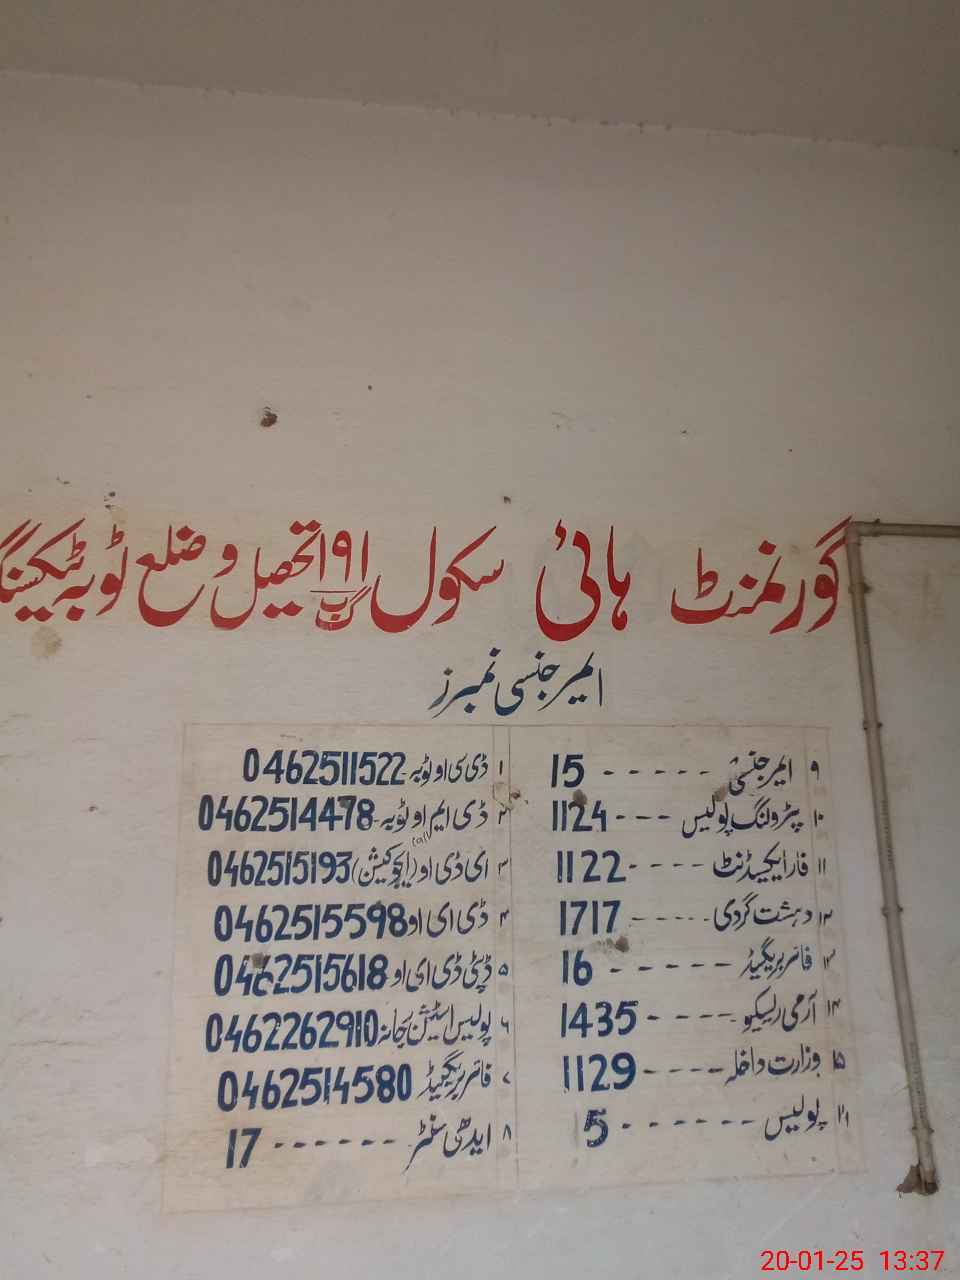 گورنمنٹ ہائی سکول ۱۹۱ گ ب تحصیل و ضلع ٹوبہ ٹیکسنگ
ایمرجنسی نمبرز
۱ ڈی سی او ٹوبہ - 0462511522
۲ ڈی ایم او ٹوبہ - 0462514478
۳ ای ڈی او (ایجوکیشن) 0462515193
۴ ڈی ای او 0462515598
۵ ڈپٹی ڈی ای او 0462515618
۶ پولیس اسٹیشن رجانہ 0462262910
۷ فائر بریگیڈ 0462514580
۸ ایدھی سنٹر ------ 17
۹ ایمرجنسی ----- 15
۱۰ پٹرولنگ پولیس --- 1124
۱۱ فار ایکسیڈنٹ ---- 1122
۱۲ دہشت گردی ----- 1717
۱۳ فائر بریگیڈ ------ 16
۱۴ آرمی ریسکیو ---- 1435
۱۵ وزارت داخلہ ---- 1129
۱۶ پولیس ------ 5
20-01-25 13:37